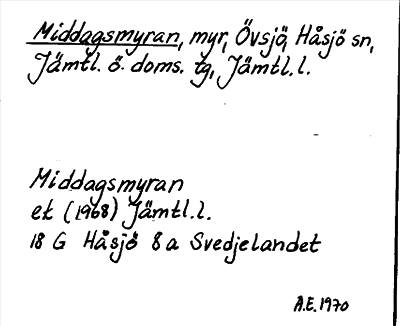 Middagsmyran, myr, Övsjö, Håsjö sn,
Jämtl. ö. doms. tg, Jämtl.l.
Middagsmyran
ek (1968) Jämtl.l.
18 G Håsjö 8a Svedjelandet
A.E. 1970